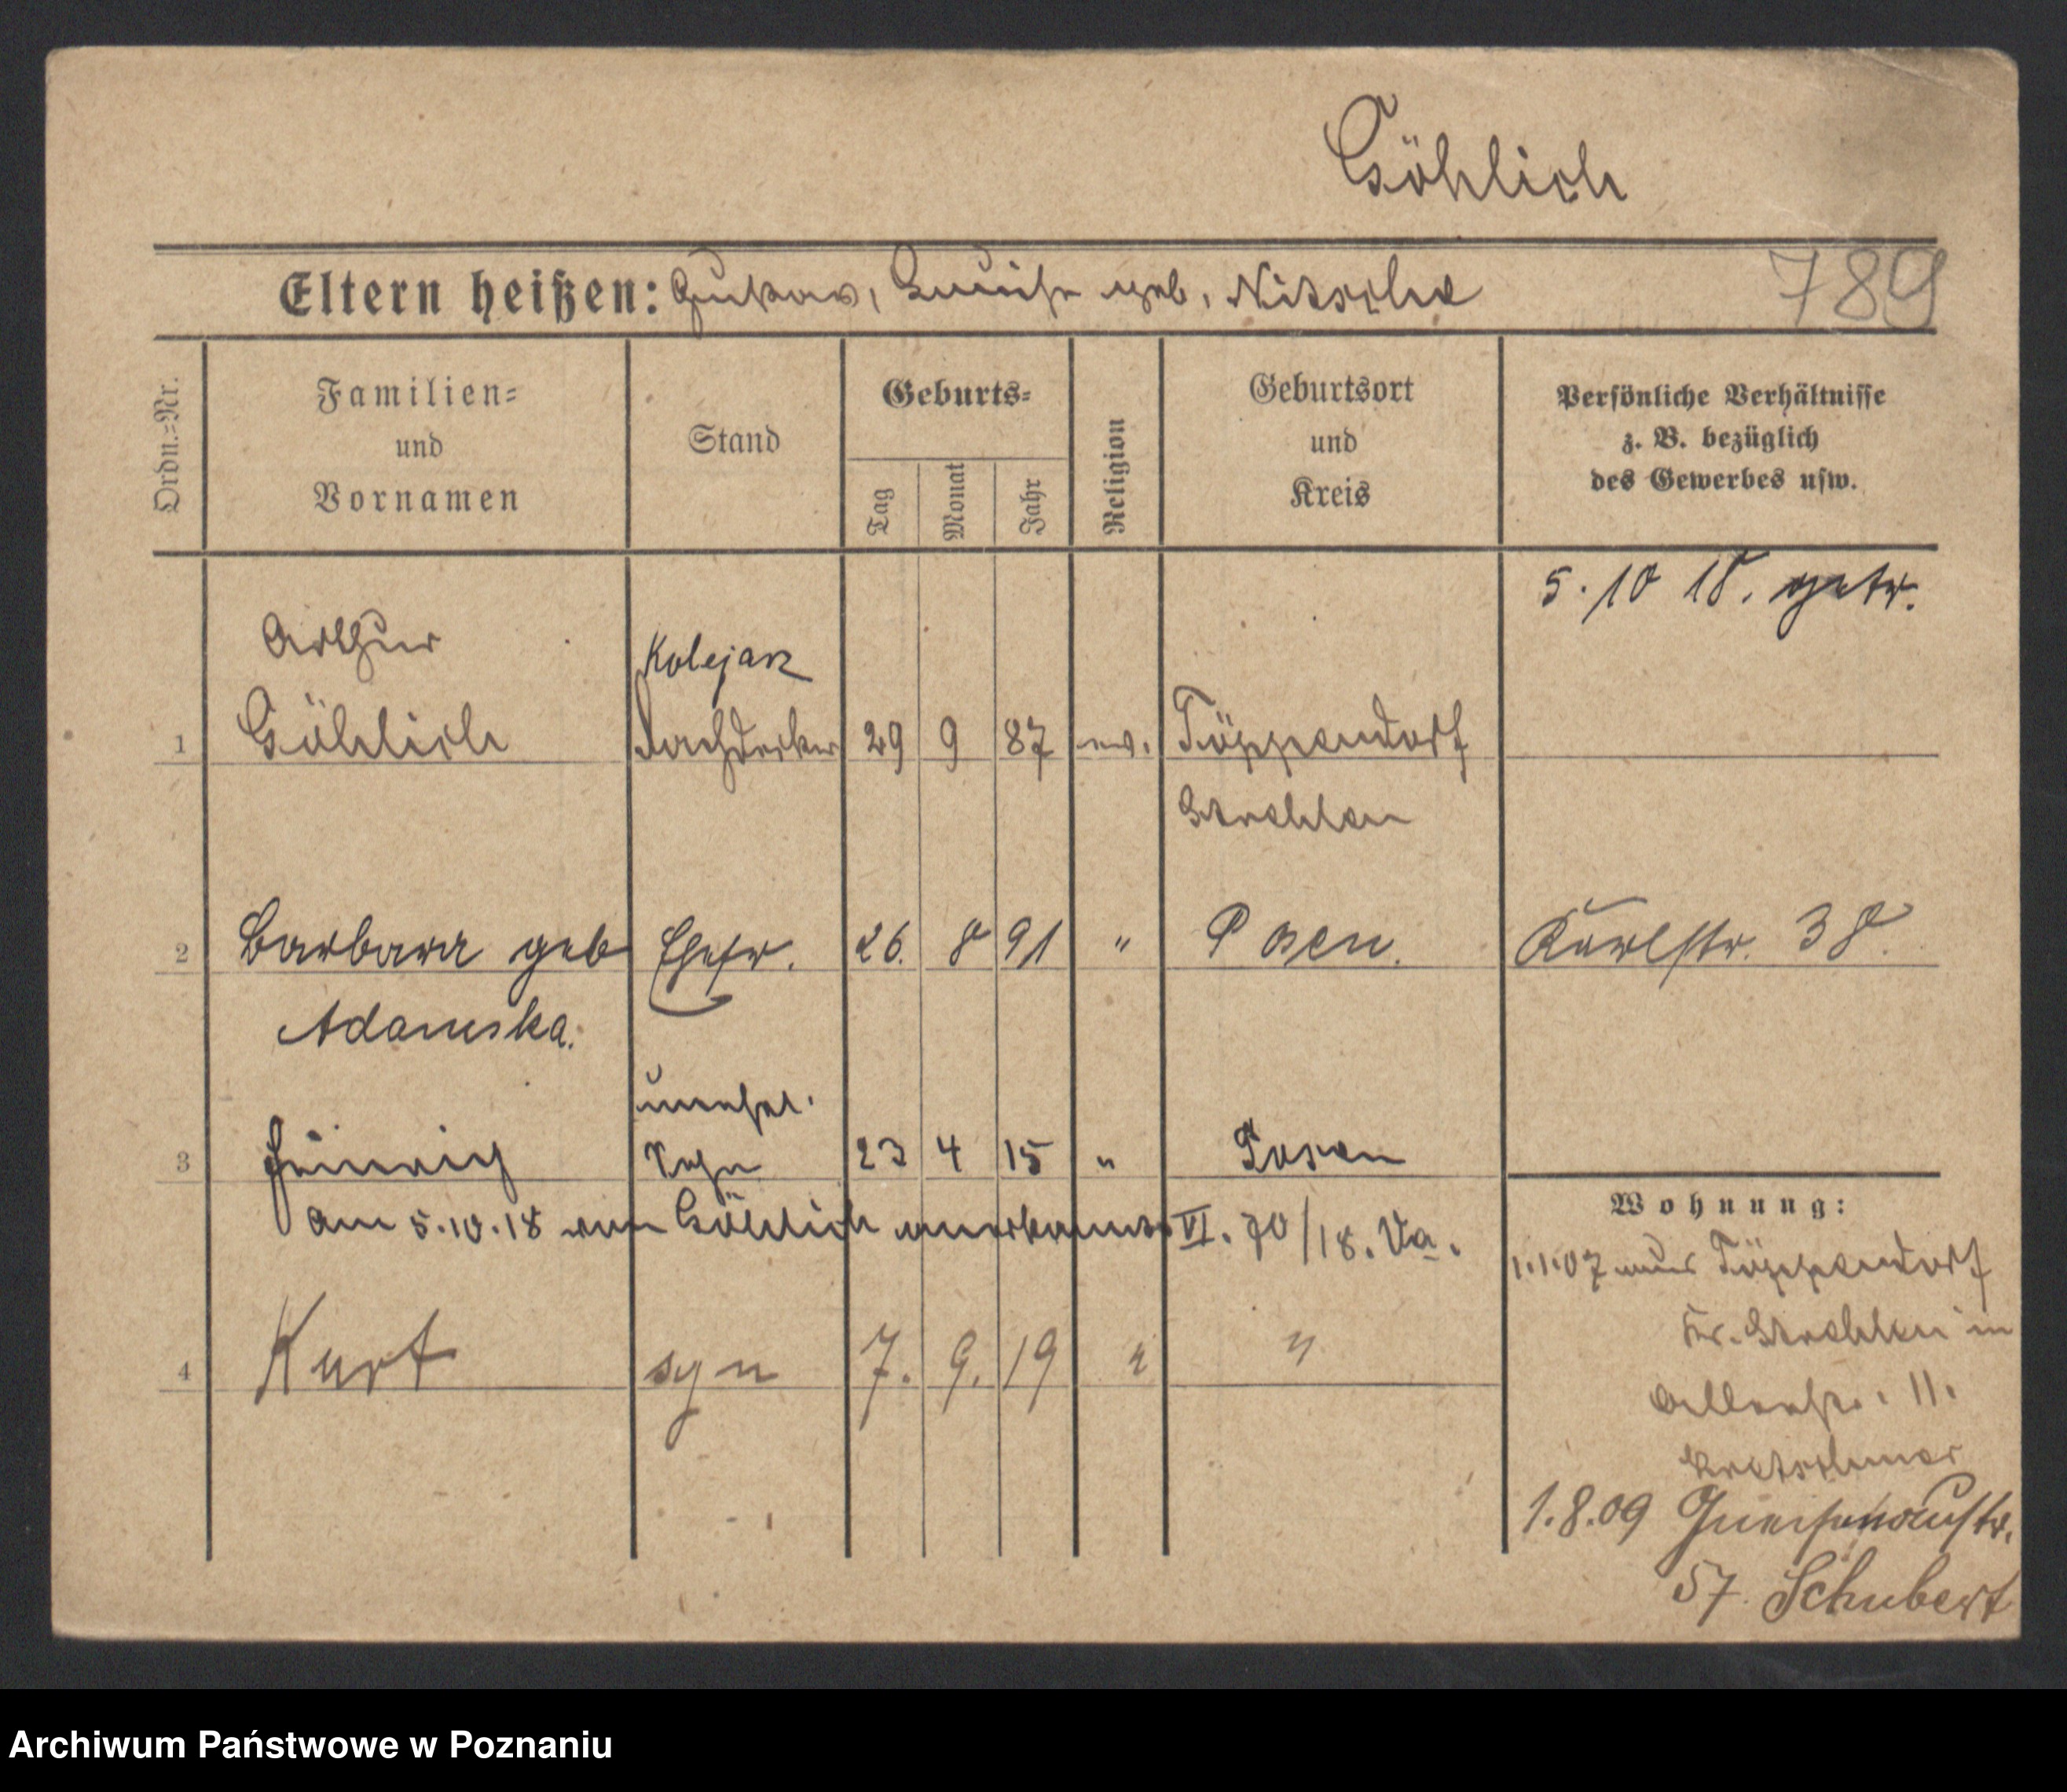 Göhlich
Eltern heißen: Gustav, Luise geb. Nitsche
789
Ordn.=Nr.
Familien=
und
Vornamen
Stand
Geburts=
Tag
Monat
Jahr
Religion
Geburtsort
und
Kreis
Persönliche Verhältnisse
z. B. bezüglich
des Gewerbes usw.
5. 10 18. getr.
Arthur
Kolejarz
1 Göhlich Dachdecker 29 9 87 ev. Töppendorf
Strehlen
2 Barbara geb Ehefr. 26. 8 91 " Posen. Karlstr. 38.
Adamska.
unehel.
3 Heinrich Sohn 23 4 15 " Posen
am 5.10.18 von Göhlich anerkannt VI. 70/18. Va.
4 Kurt syn 7. 9. 19 " "
Wohnung:
1.1.07 aus Töppendorf
Kr. Strehlen in
11.
Kretschmer
1.8.09 Gneisenaustr.
57. Schubert
Archiwum Państwowe w Poznaniu